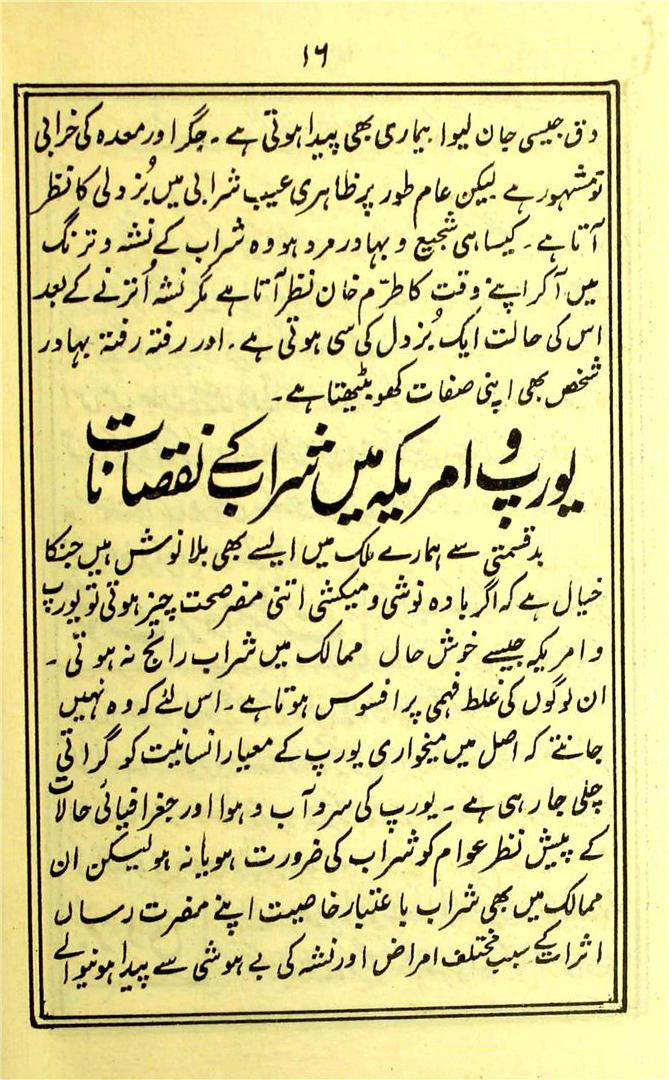 ۱۶
دق جیسی جان لیوا بیماری بھی پیدا ہوتی ہے ۔ جگر اور معدہ کی خرابی
تو مشہور ہے لیکن عام طور پر ظاہری عیب شرابی میں بُزدلی کا نظر
آتا ہے ۔ کیسا ہی شجیع و بہادر مرد ہو وہ شراب کے نشہ و ترنگ
میں آکر اپنے وقت کا طرّم خان نظر آتا ہے مگر نشہ اُترنے کے بعد
اس کی حالت ایک بُزدل کی سی ہوتی ہے ۔ اور رفتہ رفتہ بہادر
شخص بھی اپنی صفات کھو بیٹھتا ہے ۔
یورپ و امریکہ میں شراب کے نقصانات
بدقسمتی سے ہمارے ملک میں ایسے بھی بلانوش ہیں جنکا
خیال ہے کہ اگر بادہ نوشی و میکشی اتنی مضر صحت چیز ہوتی تو یورپ
و امریکہ جیسے خوش حال ممالک میں شراب رائج نہ ہوتی ۔
ان لوگوں کی غلط فہمی پر افسوس ہوتا ہے ۔ اس لئے کہ وہ نہیں
جانتے کہ اصل میں میخواری یورپ کے معیار انسانیت کو گراتی
چلی جا رہی ہے ۔ یورپ کی سرد آب و ہوا اور جغرافیائی حالات
کے پیش نظر عوام کو شراب کی ضرورت ہو یا نہ ہو لیکن ان
ممالک میں بھی شراب با عتبار خاصیت اپنے مضرت رساں
اثرات کے سبب مختلف امراض اور نشہ کی بے ہوشی سے پیدا ہونیوالے